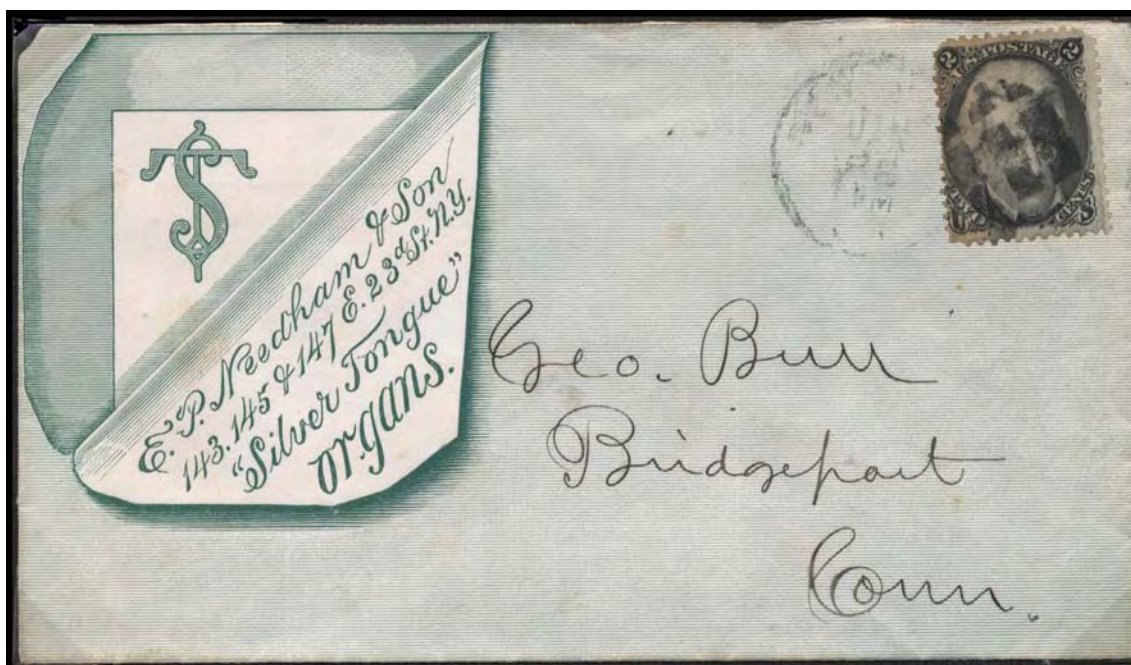 E. P. Needham & Son
143. 145 & 147 E. 23d St. N.Y.
"Silver Tongue"
Organs.
2 U.S. POSTAGE 2
Geo. Burr
Bridgeport
Conn.